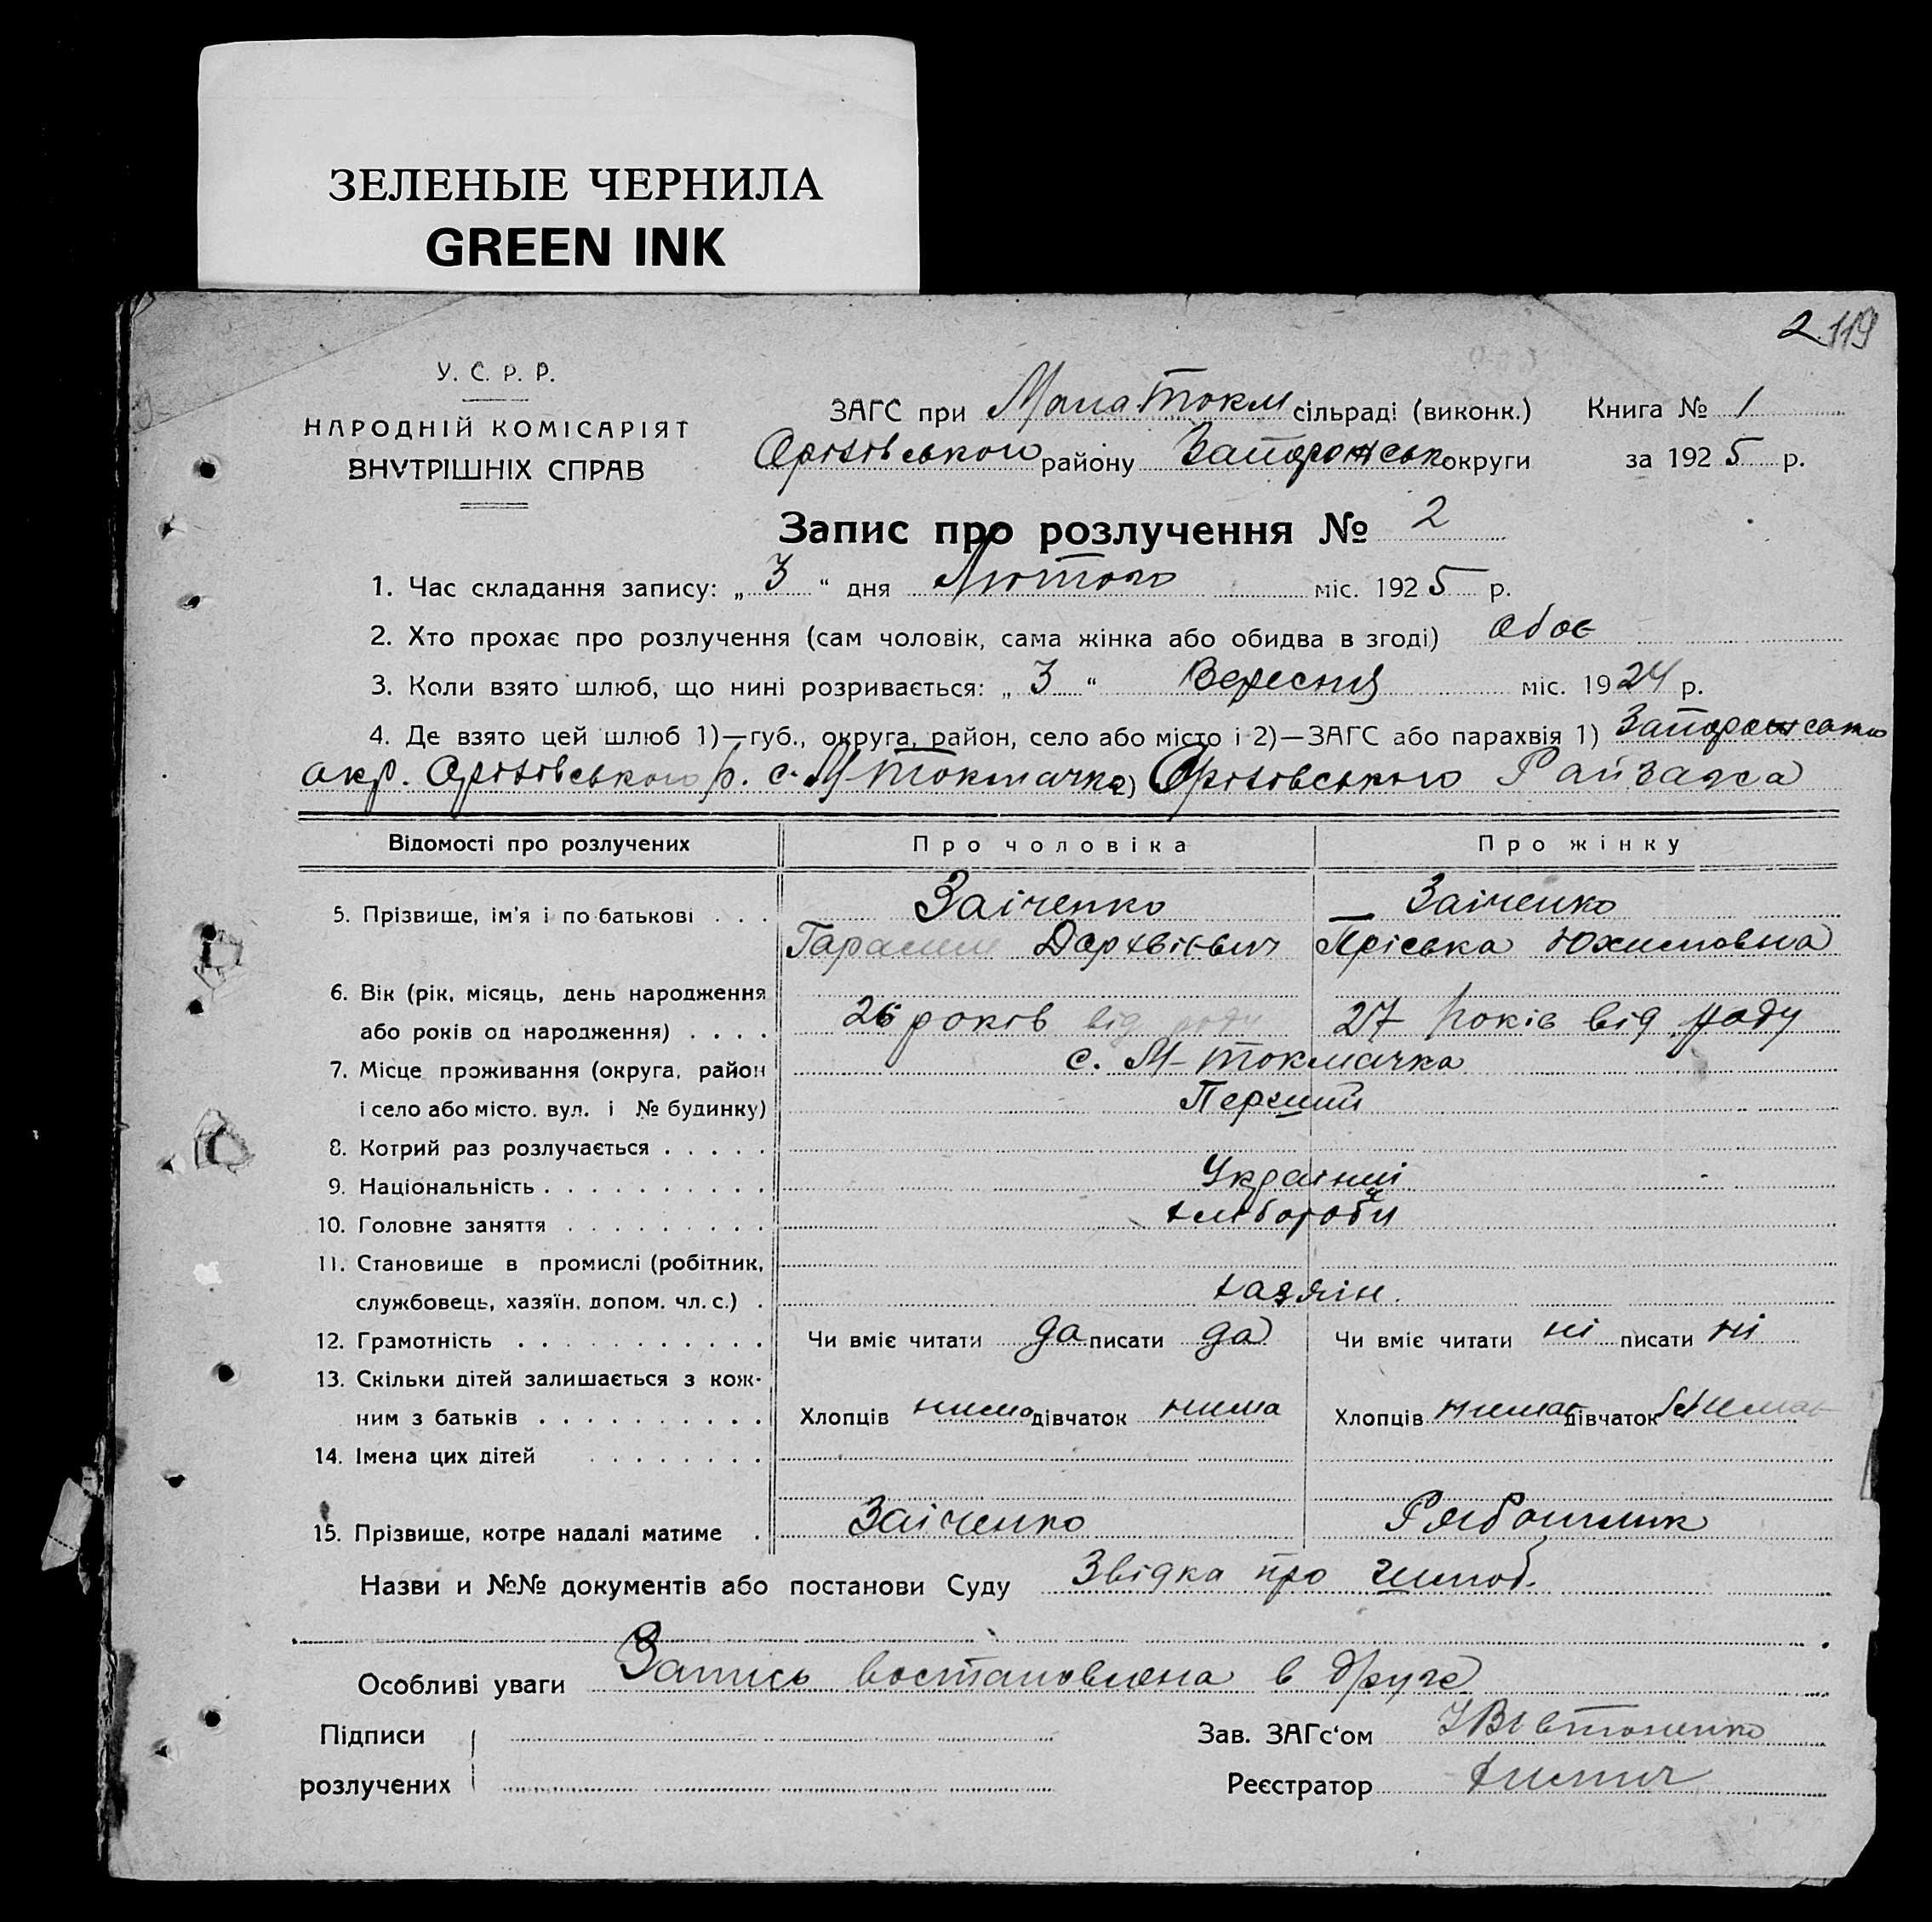 ЗЕЛЕНЫЕ ЧЕРНИЛА
GREEN INK
2 119
У. С. Р. Р.
НАРОДНІЙ КОМІСАРІЯТ
ВНУТРІШНІХ СПРАВ
ЗАГС при Мала Токм сільраді (виконк.) Книга № 1
Оріхівського району Запоріжськ округи за 1925 р.
Запис про розлучення № 2
1. Час складання запису: „ 3 “ дня Лютого міс. 1925 р.
2. Хто прохає про розлучення (сам чоловік, сама жінка або обидва в згоді) обоє
3. Коли взято шлюб, що нині розривається: „ 3 “ Вересня міс. 1924 р.
4. Де взято цей шлюб 1)—губ., округа, район, село або місто і 2)—ЗАГС або парахвія 1)
окр. Оріхівського р. с. М-Токмачка 2) Оріхівського Райзагса
Відомості про розлучених Про чоловіка Про жінку
5. Прізвище, ім'я і по батькові . . . Заіченко Заіченко
Гарасим Пріська Юхимовна
6. Вік (рік, місяць, день народження
або років од народження) . . . . 26 років від роду 27 років від роду
7. Місце проживання (округа, район с. М-Токмачка
і село або місто, вул. і № будинку) Перший
8. Котрий раз розлучається . . . . .
9. Національність . . . . . . . . . . Українці
10. Головне заняття . . . . . . . . . хлібороби
11. Становище в промислі (робітник,
службовець, хазяїн, допом. чл. с.) . хазяін.
12. Грамотність . . . . . . . . . . . Чи вміє читати да писати да Чи вміє читати ні писати ні
13. Скільки дітей залишається з кож-
ним з батьків . . . . . . . . . . Хлопців нима дівчаток нима Хлопців нимає дівчаток нимає
14. Імена цих дітей . . . . . . . .
15. Прізвище, котре надалі матиме . Заіченко Рябошлик
Назви и №№ документів або постанови Суду Звідка про шлюб.
Особливі уваги Запись востановлена в друге
Підписи Зав. ЗАГс‘ом
розлучених Реєстратор